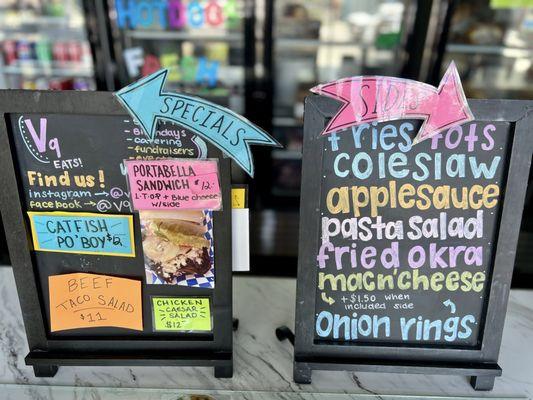 HOTDOGS
SPECIALS
Vq
EATS!
Birthdays
catering
fundraisers
Find us!
instagram
facebook → @vq
PORTABELLA
SANDWICH $12.
L•T•O•P + Blue cheese
w/side
CATFISH
PO'BOY $12
BEEF
TACO SALAD
$11
CHICKEN
CAESAR
SALAD
$12
SIDES
fries tots
coleslaw
applesauce
pasta salad
fried okra
mac n' cheese
+$1.50 when
included side
Onion rings